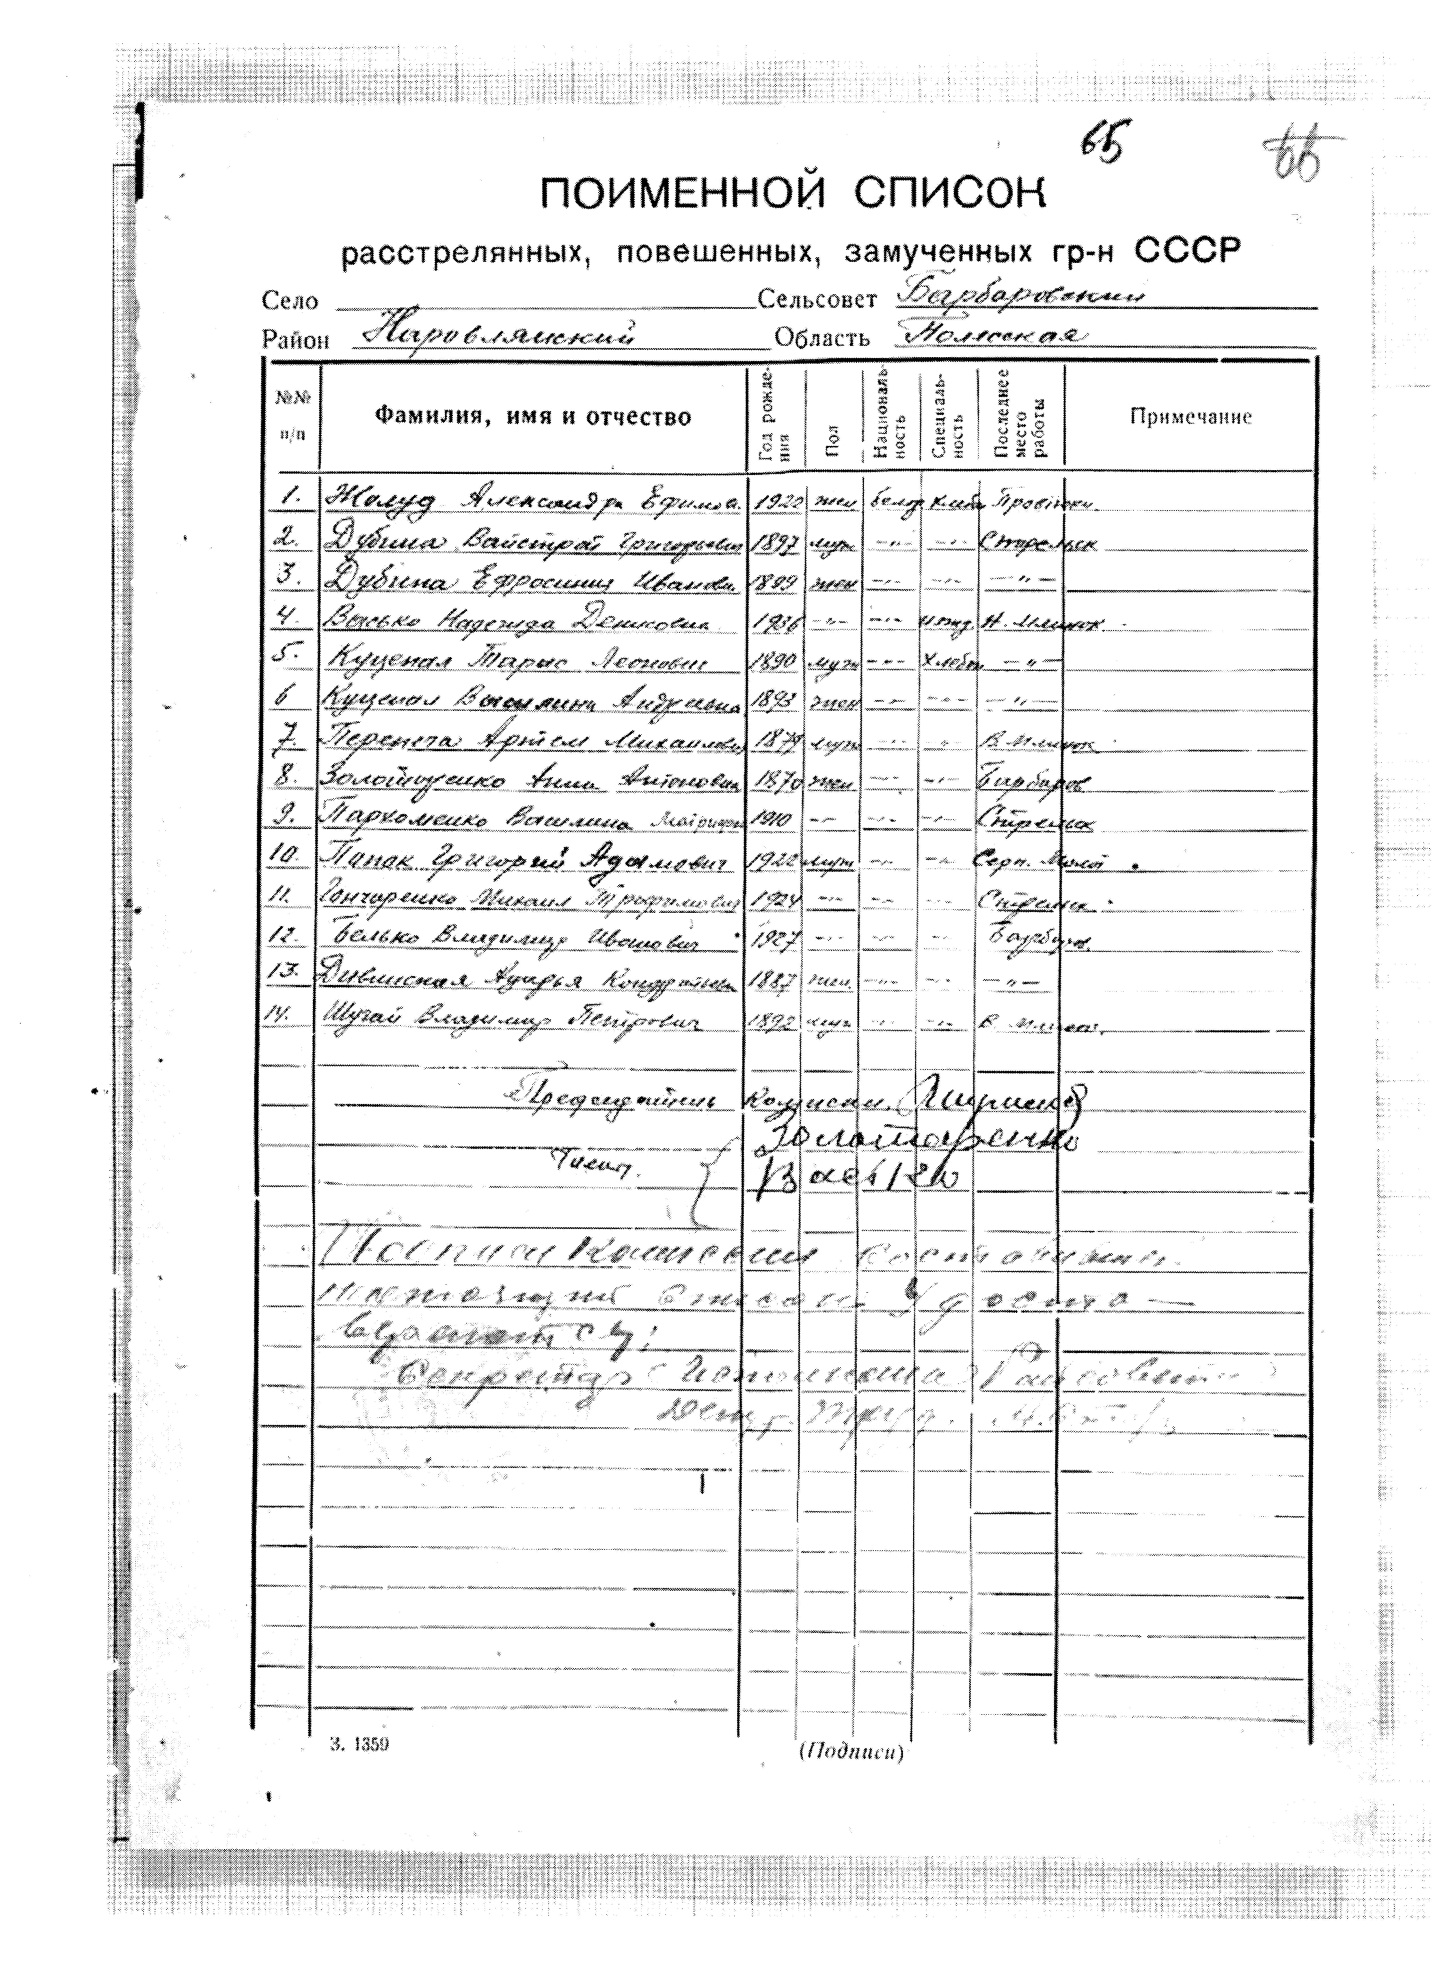 65 66
ПОИМЕННОЙ СПИСОК
расстрелянных, повешенных, замученных гр-н СССР
Село Сельсовет Барбаровский
Район Наровлянский Область Полесская
№№ п/п Фамилия, имя и отчество Год рожде-ния Пол Националь-ность Специаль-ность Последнее место работы Примечание
1. Жолуд Александра Ефимов. 1922 жен белор. хлебо
2. Дубина Григорьевич 1897 муж -„- -„- Стрельск
3. Дубина Ефросиния Иванов. 1899 жен -„- -„- -„-
4. Надежда Денисовна 1936 -„- -„- ижд. Н. Млинок.
5. Куцепал Тарас Леонович 1890 муж -„- хлебоп -„-
6 Куцепал Василина Андреевна 1893 жен -„- -„- -„-
7. Артем Михайлович 1879 муж -„- „ В. Млинок
8. Анна Антоновна 1870 жен -„- -„- Барбаров
9. Пархоменко Василина 1910 -„- -„- -„- Стрельск
10. Папак Григорий Адамович 1922 муж -„- -„- Серп. Молот
11. Гончаренко Михаил Трофимович 1924 -„- -„- -„- Стрельск
12. Белько Владимир Иванович 1927 -„- -„- -„- Барбаров.
13. Дивинская Кондратьев 1887 жен. -„- -„- -„-
14. Шугай Владимир Петрович 1892 муж -„- -„- В. Млинок.
Председатель комиссии.
Члены. Золотаренко
Подписи Комиссии
настоящий список Удосто-
веряется:
Секретарь Исполкома Райсовета
Деп. Труд.
З. 1359 (Подписи)